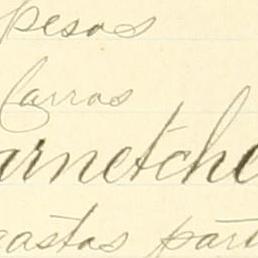 pesos
Carros
arnetche
gastos part